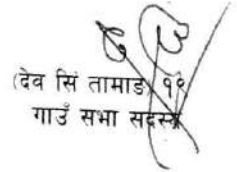 (देव सिं तामाङ) १९
गाउँ सभा सदस्य